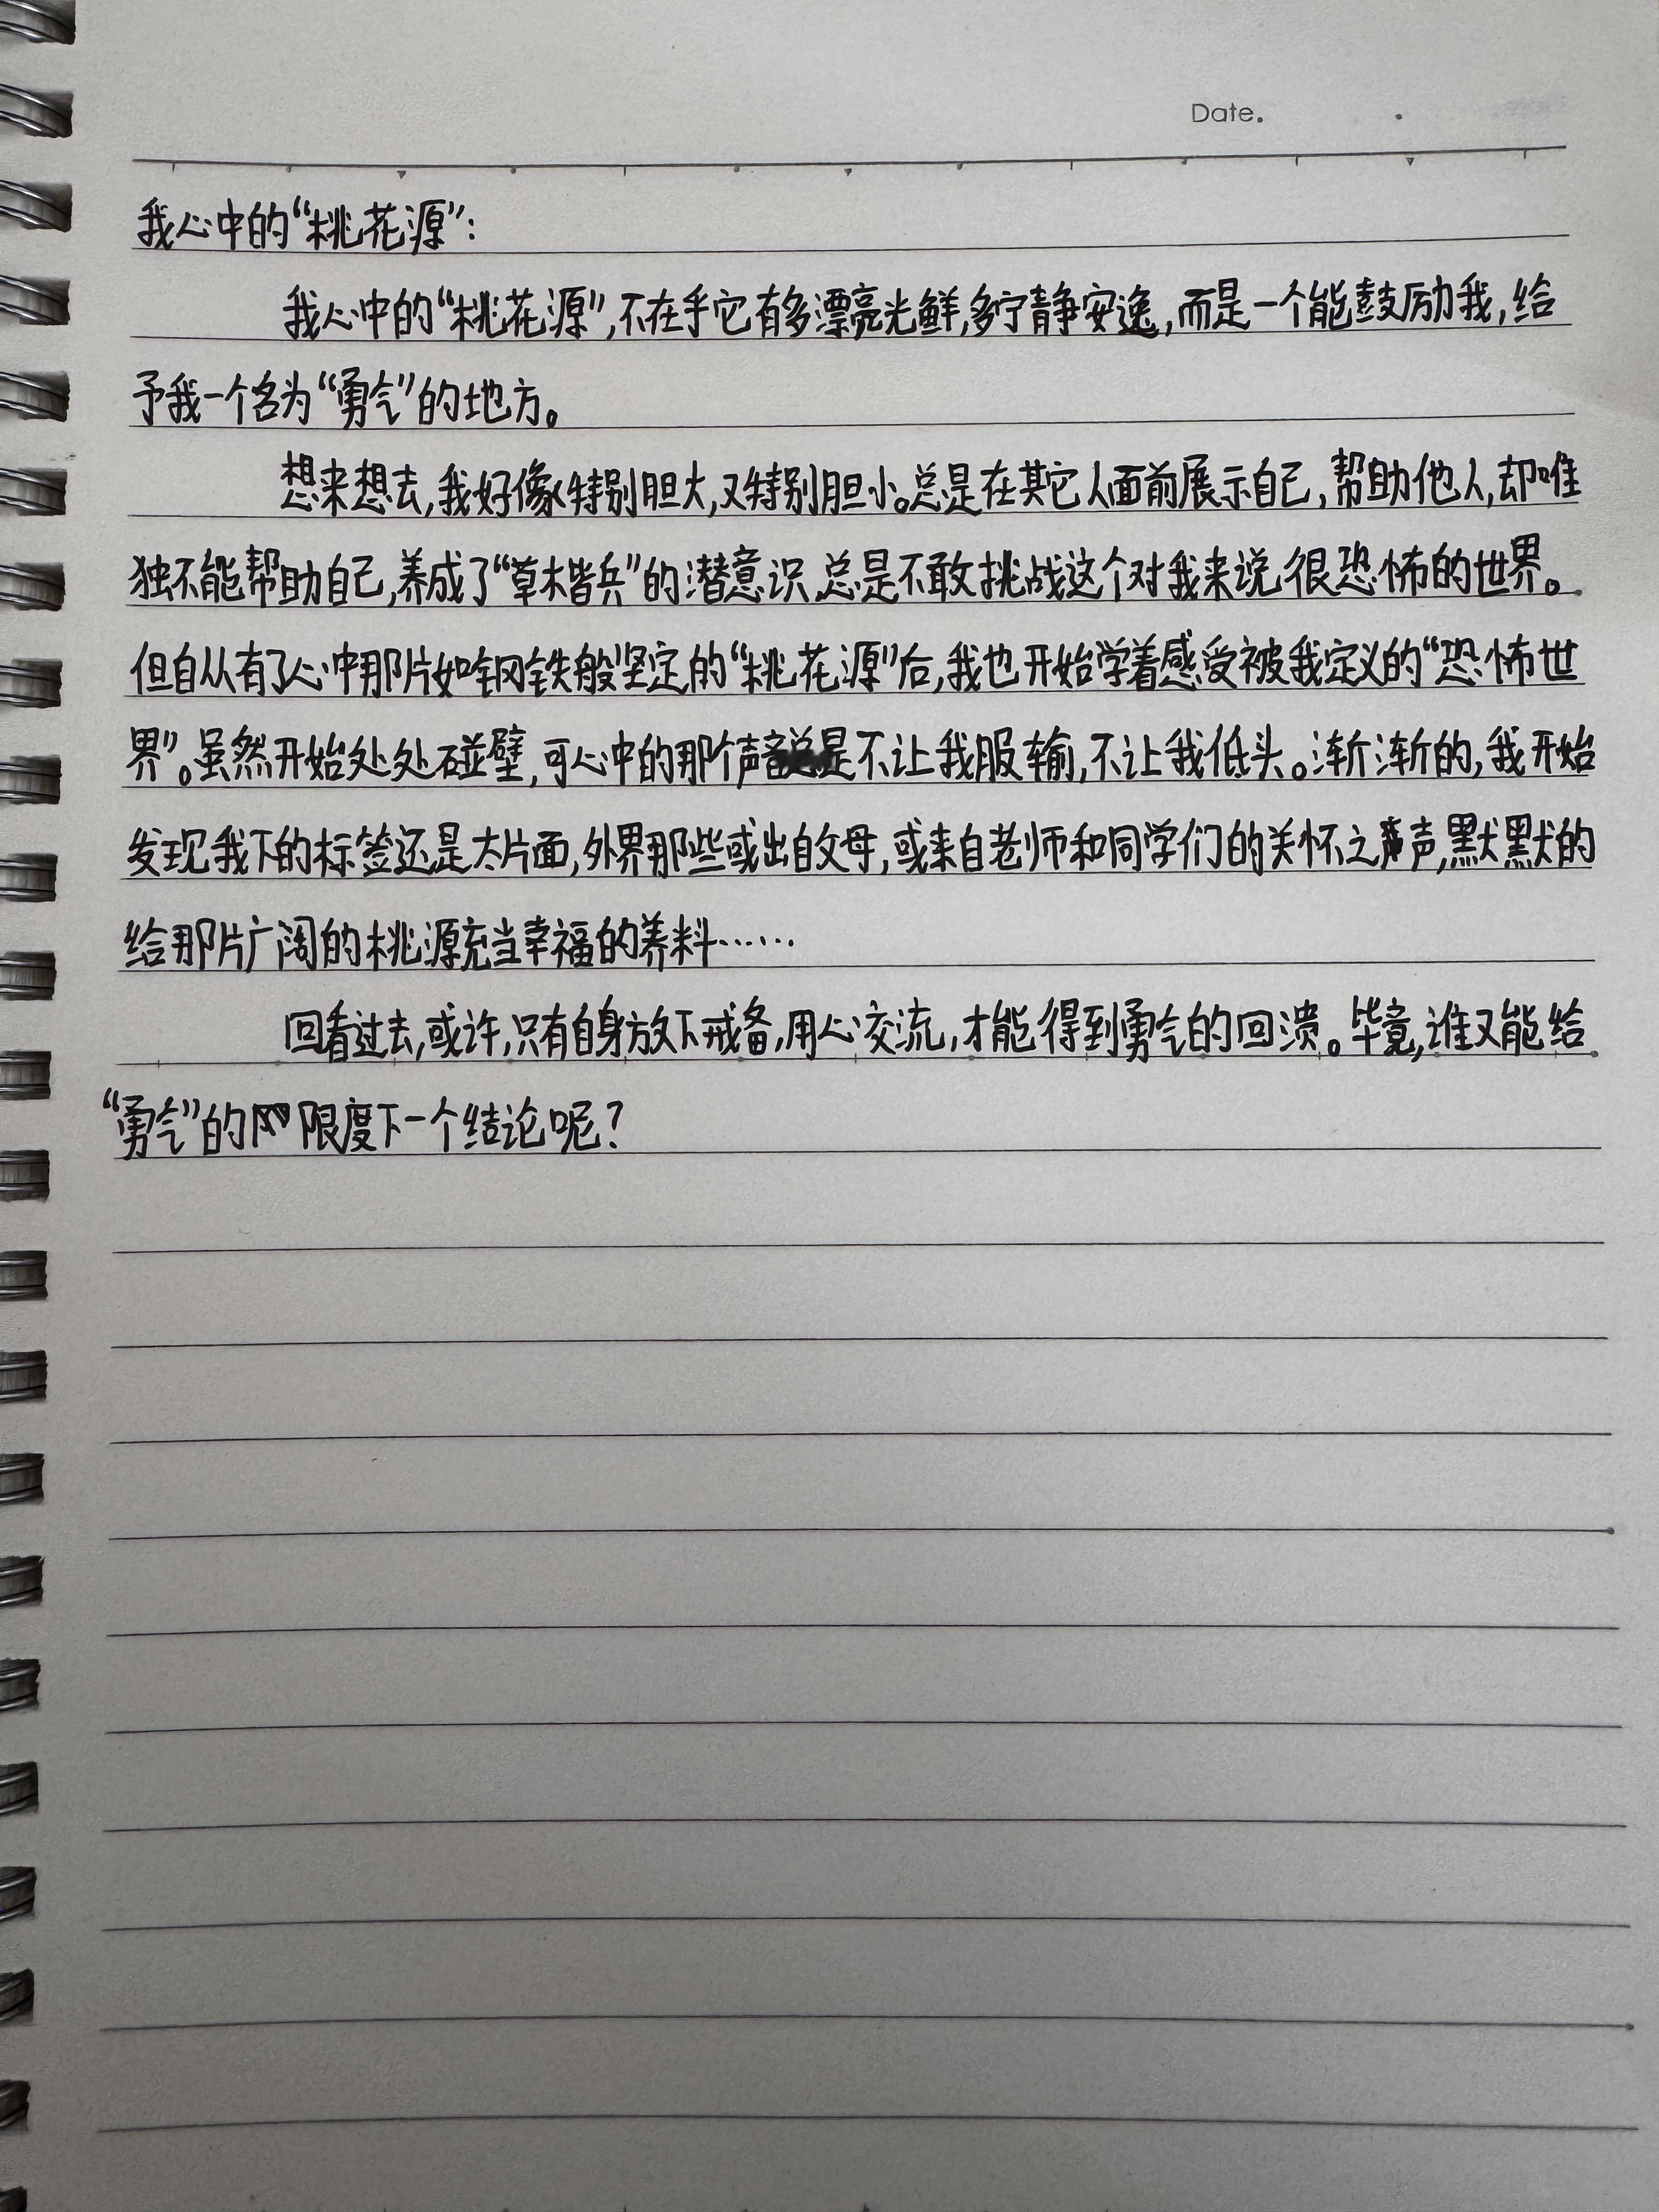 Date.
我心中的“桃花源”：
我心中的“桃花源”,不在乎它有多漂亮光鲜,多宁静安逸,而是一个能鼓励我,给
予我一个名为“勇气”的地方。
想来想去,我好像特别胆大,又特别胆小。总是在其它人面前展示自己,帮助他人,却唯
独不能帮助自己,养成了“草木皆兵”的潜意识,总是不敢挑战这个对我来说很恐怖的世界。
但自从有了心中那片如钢铁般坚定的“桃花源”后,我也开始学着感受被我定义的“恐怖世
界”。虽然开始处处碰壁,可心中的那个声音总是不让我服输,不让我低头。渐渐的,我开始
发现我下的标签还是太片面,外界那些或出自父母,或来自老师和同学们的关怀之声,默默的
给那片广阔的桃源充当幸福的养料……
回看过去,或许,只有自身放下戒备,用心交流,才能得到勇气的回溃。毕竟,谁又能给
“勇气”的限度下一个结论呢?